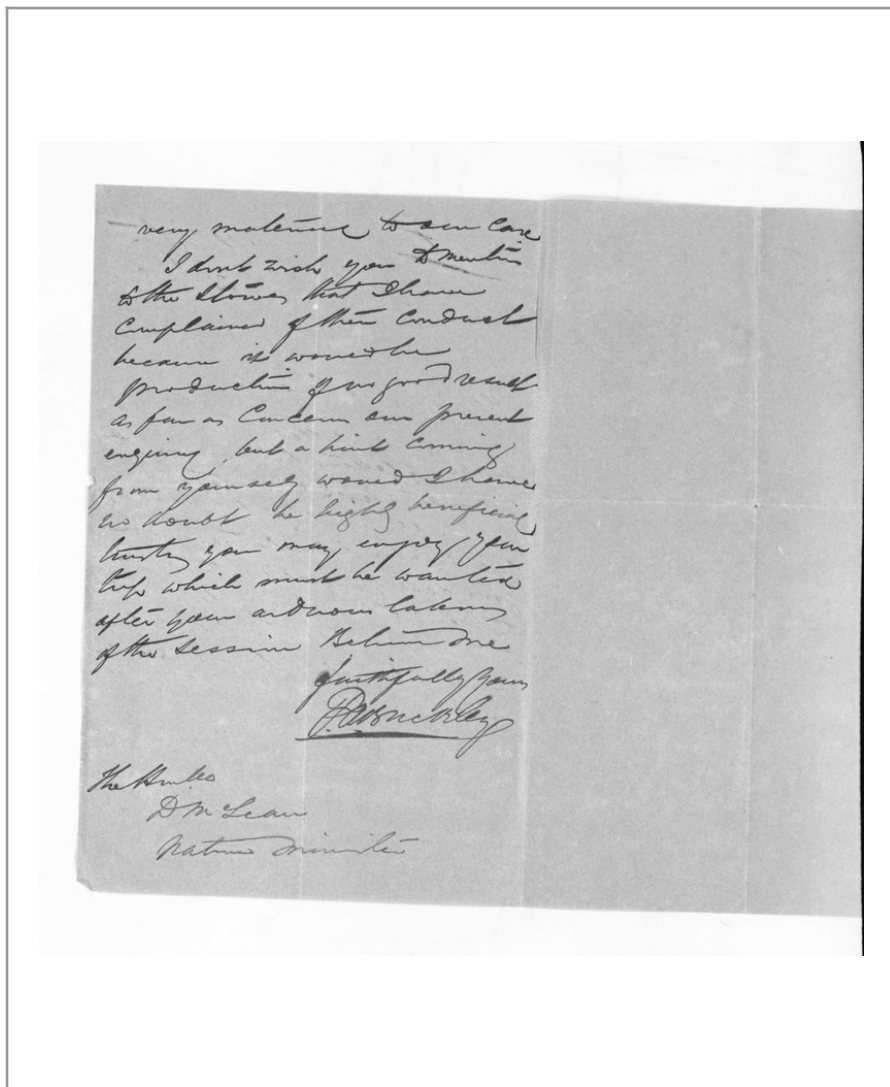 very material to our case
I dont wish you to mention
to the that I have
complained of their conduct
because it would be
productive of no good result
as far as concerns our present
enquiry, but a hint coming
from yourself would I have
no doubt be highly beneficial
trusting you may enjoy your
trip which must be wanted
after your arduous labours
of the session Believe me
faithfully yours
Buckley
The Honble
D McLean
Native Minister